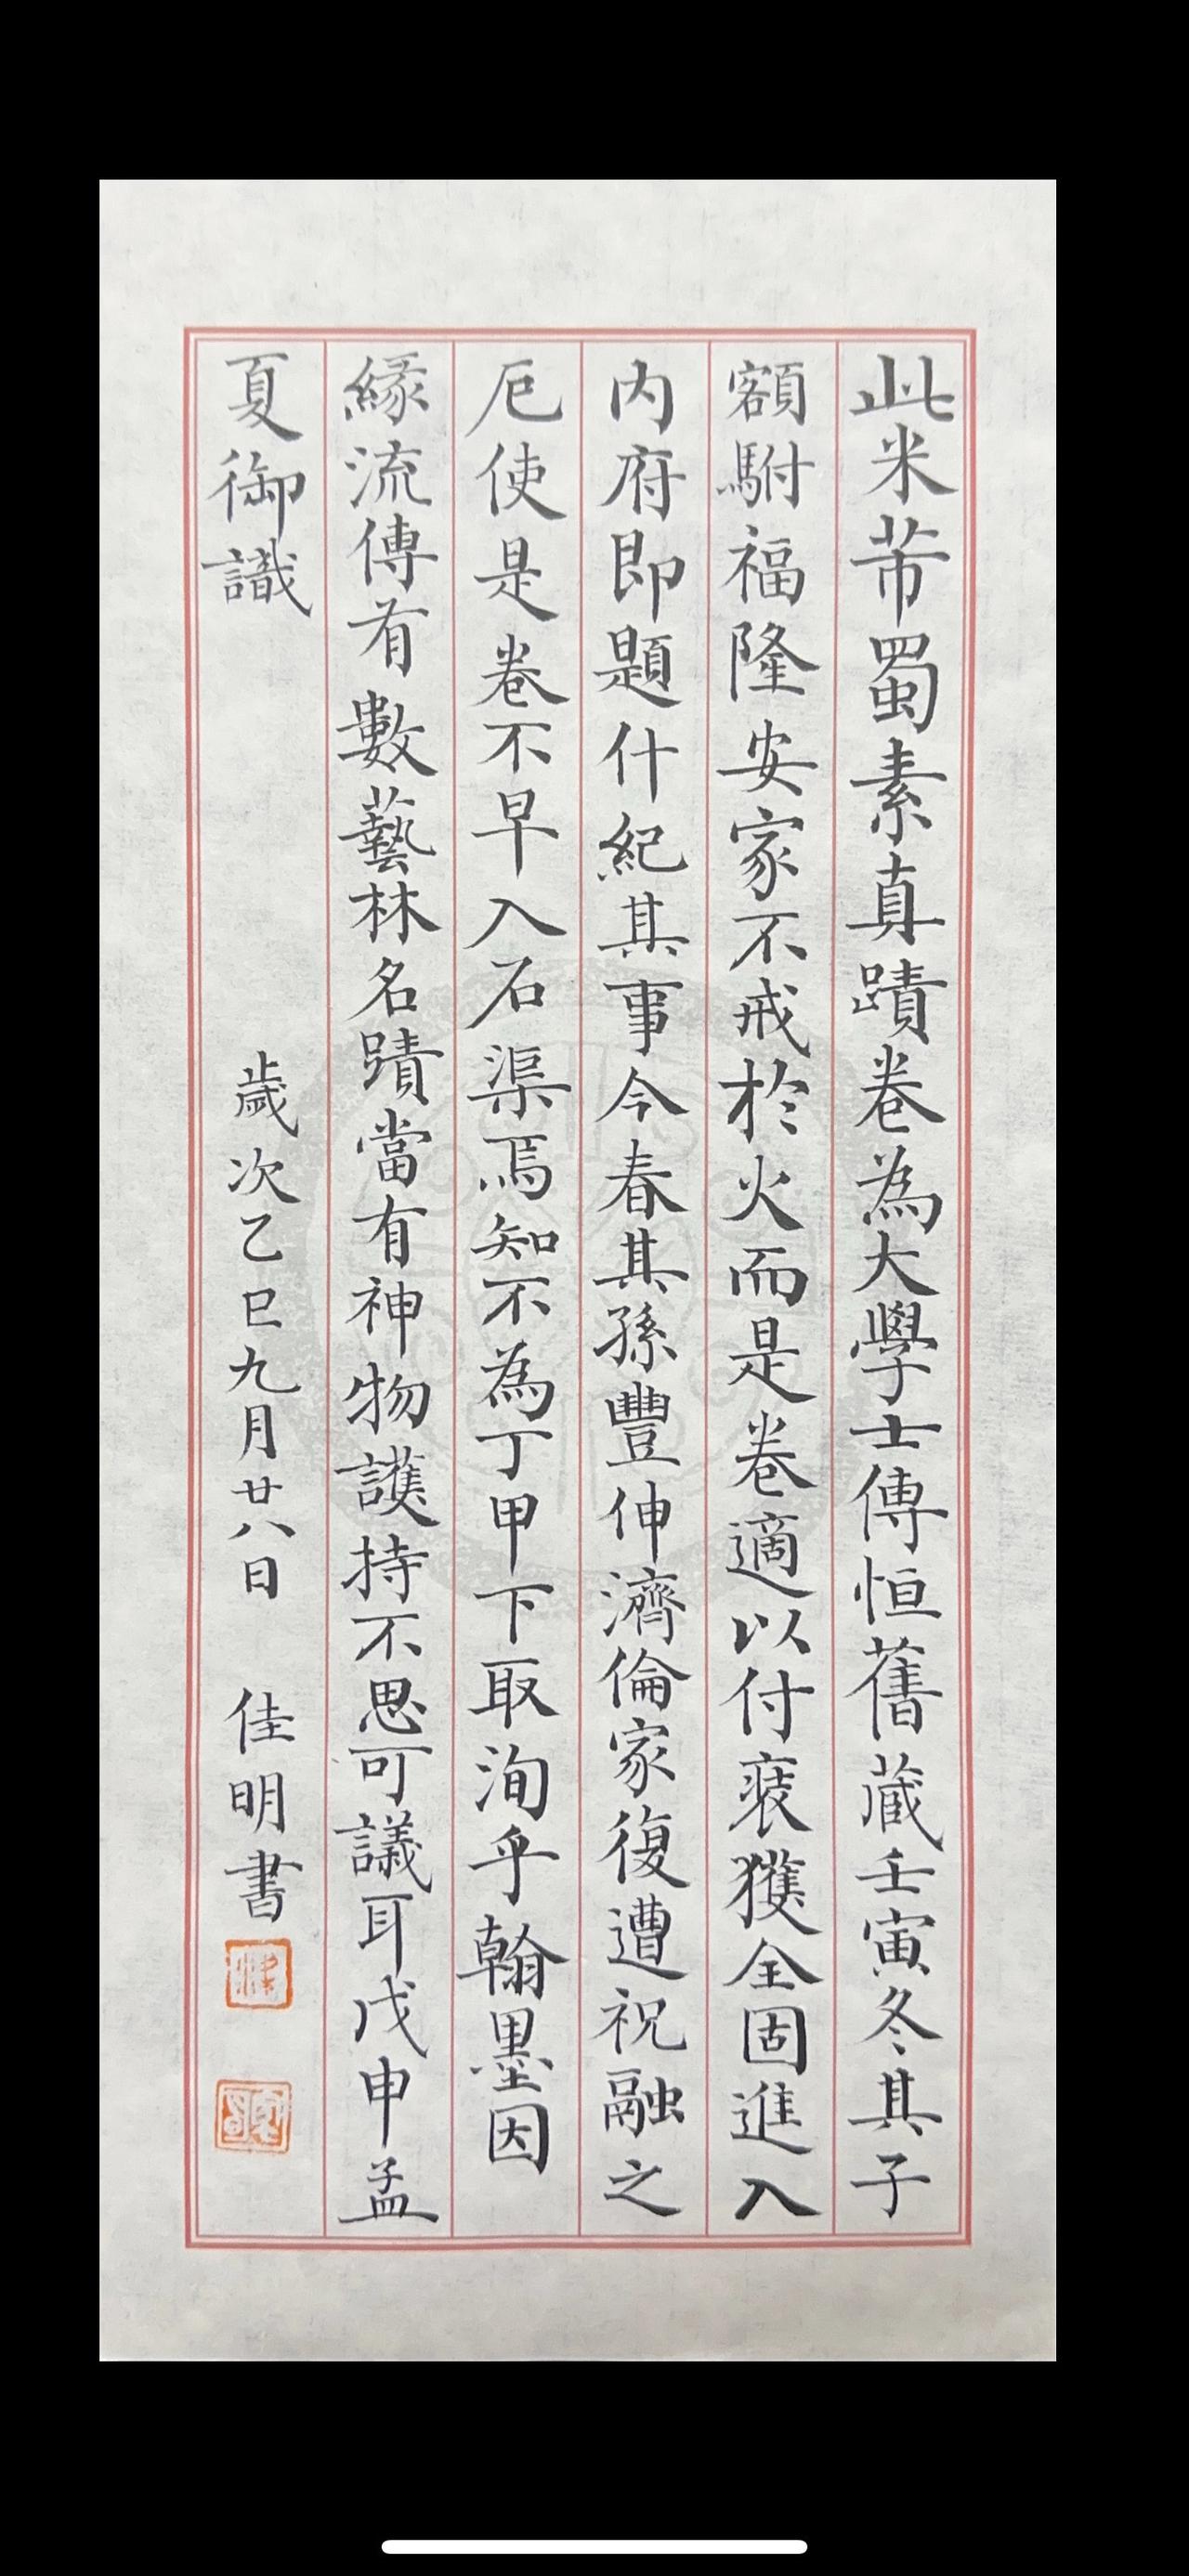 此米芾蜀素真蹟卷為大學士傅恒舊藏壬寅冬其子
額駙福隆安家不戒於火而是卷適以付裝獲全固進入
内府即題什紀其事今春其孫豐伸濟倫家復遭祝融之
厄使是卷不早入石渠焉知不為丁甲下取洵乎翰墨因
緣流傳有數藝林名蹟當有神物護持不思可議耳戊申孟
夏御識
歲次乙巳九月廿八日 佳明書